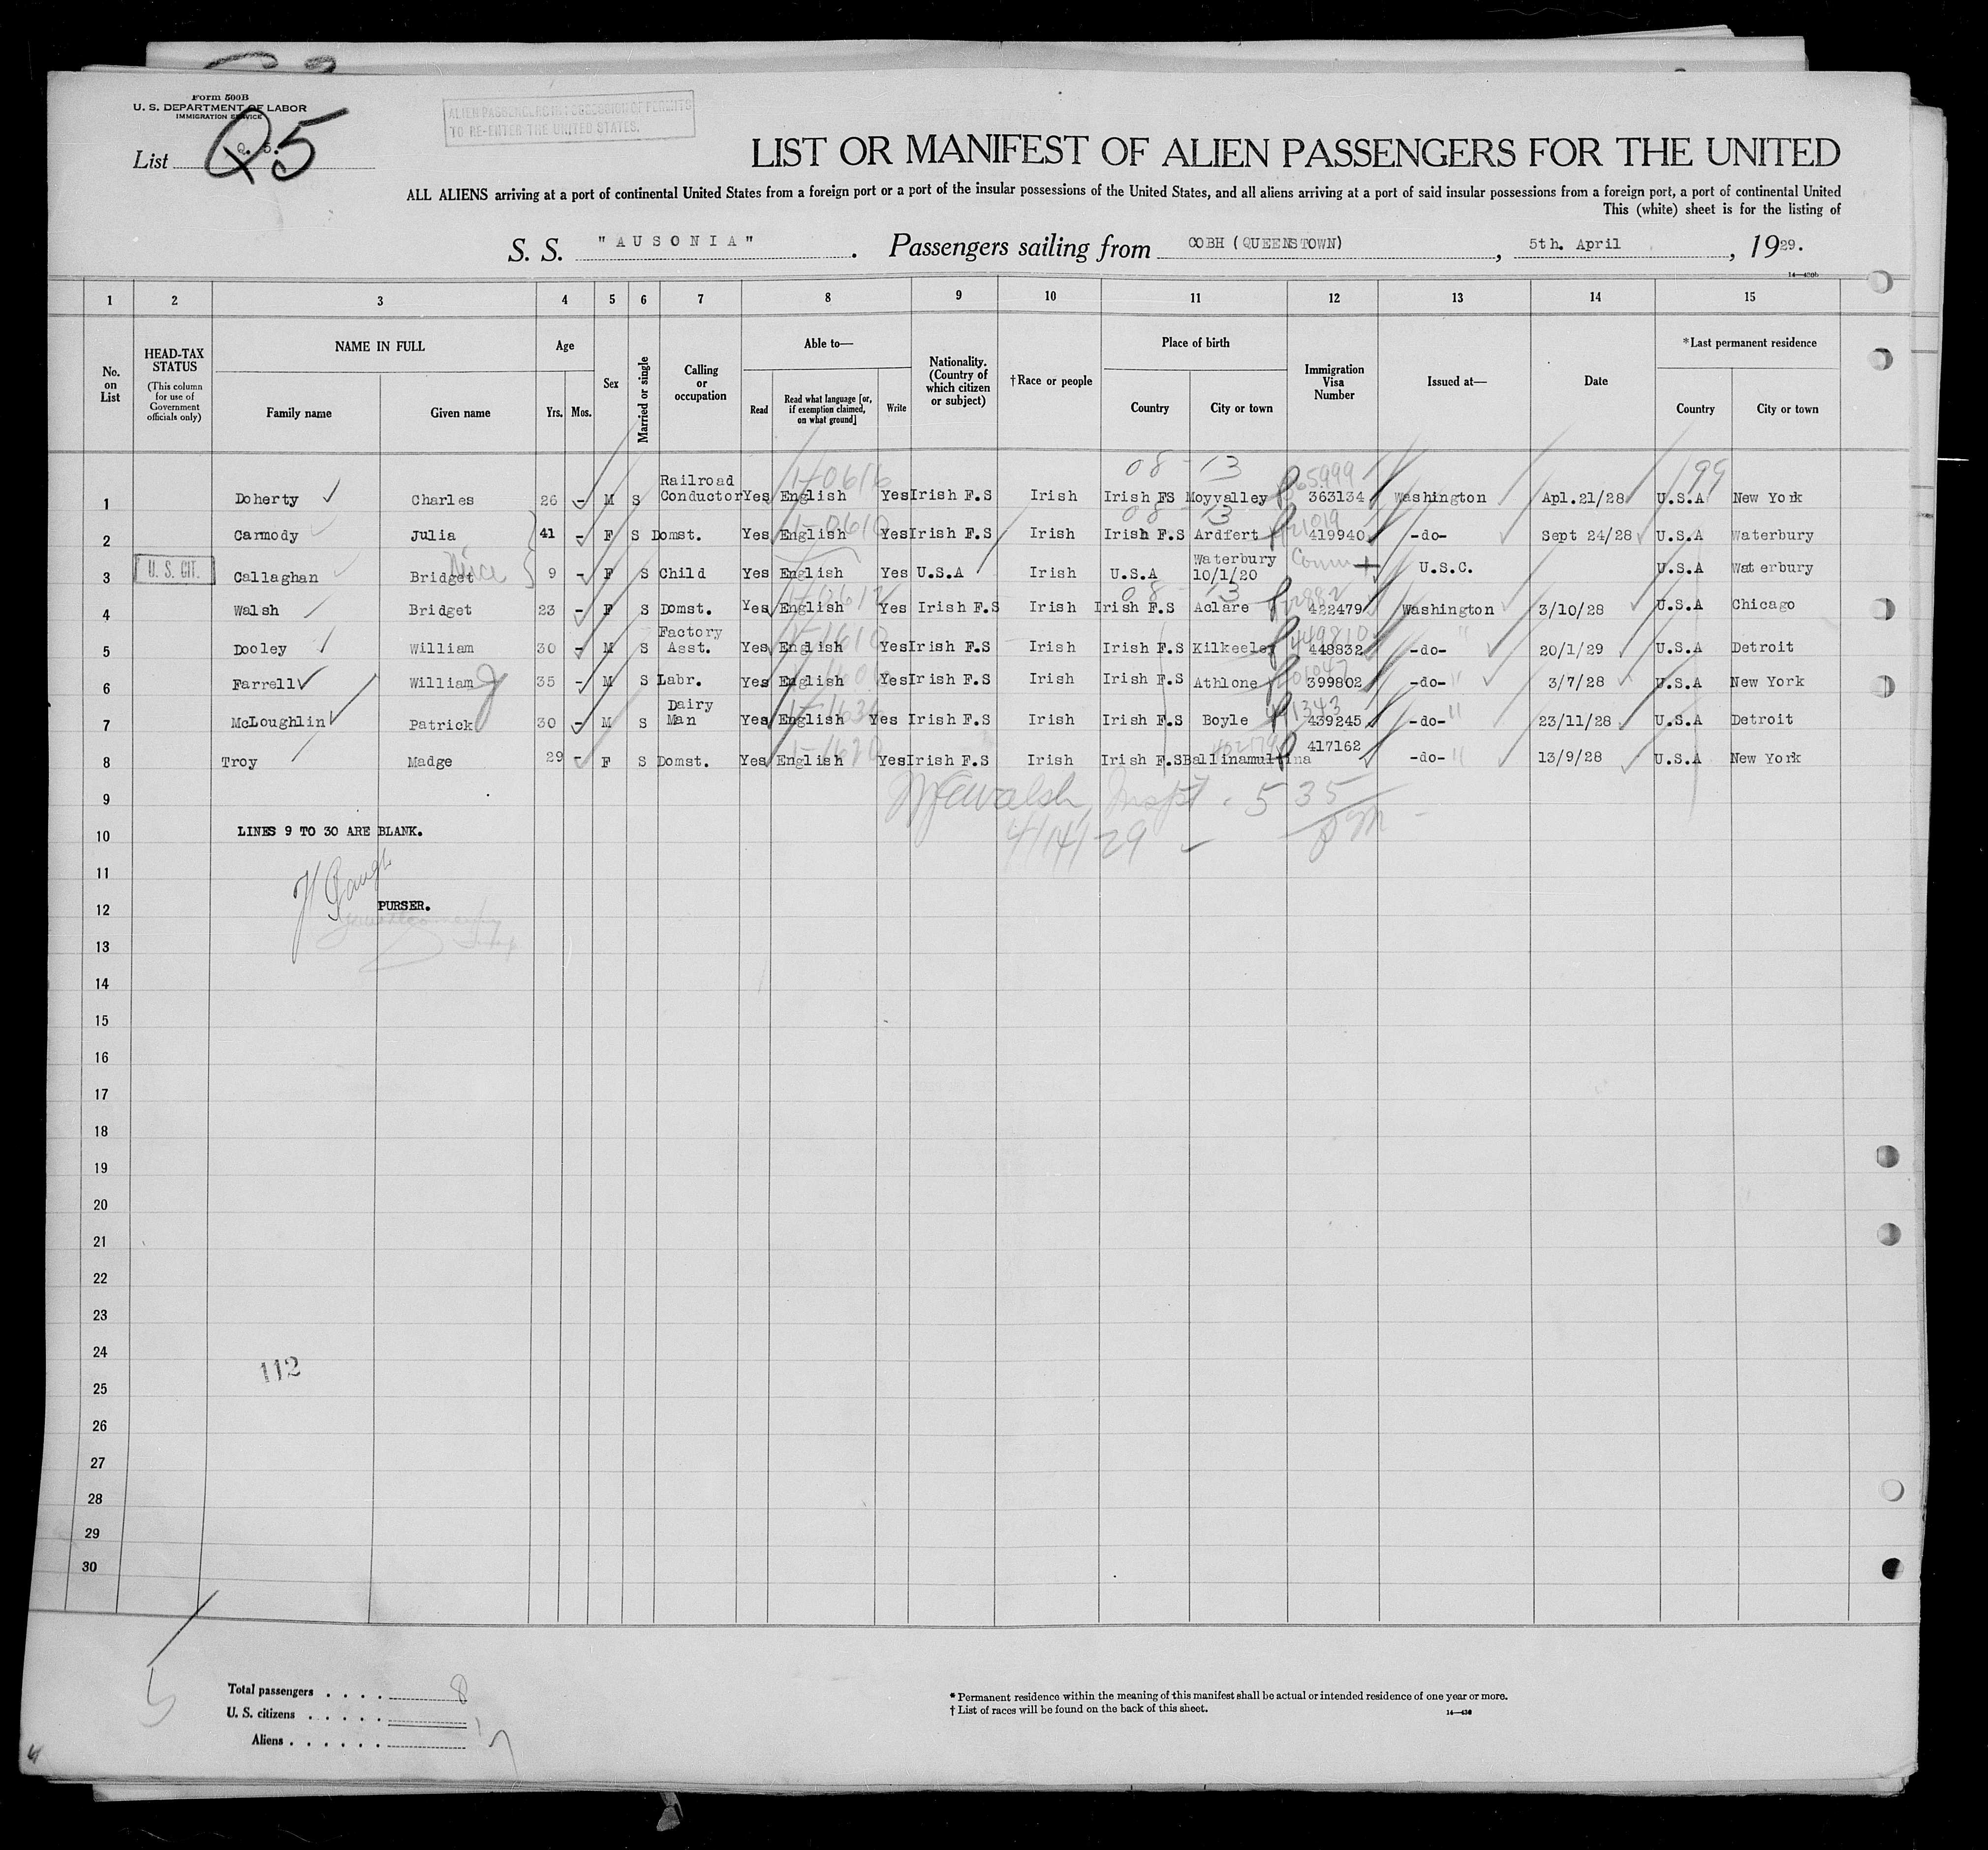 Form 500B
U. S. DEPARTMENT OF LABOR
IMMIGRATION SERVICE
List Q. 5.
Q5
ALIEN PASSENGERS IN POSSESSION OF PERMITS
TO RE-ENTER THE UNITED STATES.
LIST OR MANIFEST OF ALIEN PASSENGERS FOR THE UNITED
ALL ALIENS arriving at a port of continental United States from a foreign port or a port of the insular possessions of the United States, and all aliens arriving at a port of said insular possessions from a foreign port, a port of continental United
This (white) sheet is for the listing of
S. S. "AUSONIA". Passengers sailing from COBH (QUEENSTOWN), 5th. April, 1929.
14—430b
1 2 3 4 5 6 7 8 9 10 11 12 13 14 15
No. on List
HEAD-TAX STATUS (This column for use of Government officials only)
NAME IN FULL
Family name Given name
Age
Yrs. Mos.
Sex
Married or single
Calling or occupation
Able to—
Read Read what language [or, if exemption claimed, on what ground] Write
Nationality. (Country of which citizen or subject)
†Race or people
Place of birth
Country City or town
Immigration Visa Number
Issued at—
Date
*Last permanent residence
Country City or town
08-13 199
1 Doherty Charles 26 - M S Railroad Conductor Yes English Yes Irish F.S Irish Irish FS Moyvalley 363134 Washington Apl.21/28 U.S.A New York
08-13
2 Carmody Julia 41 - F S Domst. Yes English Yes Irish F.S Irish Irish F.S Ardfert 419940 -do- Sept 24/28 U.S.A Waterbury
3 U. S. CIT. Callaghan Bridget Niece 9 - F S Child Yes English Yes U.S.A Irish U.S.A Waterbury 10/1/20 U.S.C. U.S.A Waterbury
08-13
4 Walsh Bridget 23 - F S Domst. Yes English Yes Irish F.S Irish Irish F.S Aclare 422479 Washington 3/10/28 U.S.A Chicago
5 Dooley William 30 - M S Factory Asst. Yes English Yes Irish F.S Irish Irish F.S Kilkeeley 448832 -do- 20/1/29 U.S.A Detroit
6 Farrell William J 35 - M S Labr. Yes English Yes Irish F.S Irish Irish F.S Athlone 399802 -do- 3/7/28 U.S.A New York
7 McLoughlin Patrick 30 - M S Dairy Man Yes English Yes Irish F.S Irish Irish F.S Boyle 439245 -do- 23/11/28 U.S.A Detroit
8 Troy Madge 29 - F S Domst. Yes English Yes Irish F.S Irish Irish F.S Ballinamultina 417162 -do- 13/9/28 U.S.A New York
9
Walsh, Inspt. 5 35
10 LINES 9 TO 30 ARE BLANK.
4/14/29 PM
11
12 PURSER.
13
14
15
16
17
18
19
20
21
22
23
24
112
25
26
27
28
29
30
Total passengers . . . . 8
U. S. citizens . . . . . 1
Aliens . . . . . . 7
* Permanent residence within the meaning of this manifest shall be actual or intended residence of one year or more.
† List of races will be found on the back of this sheet.
14—430